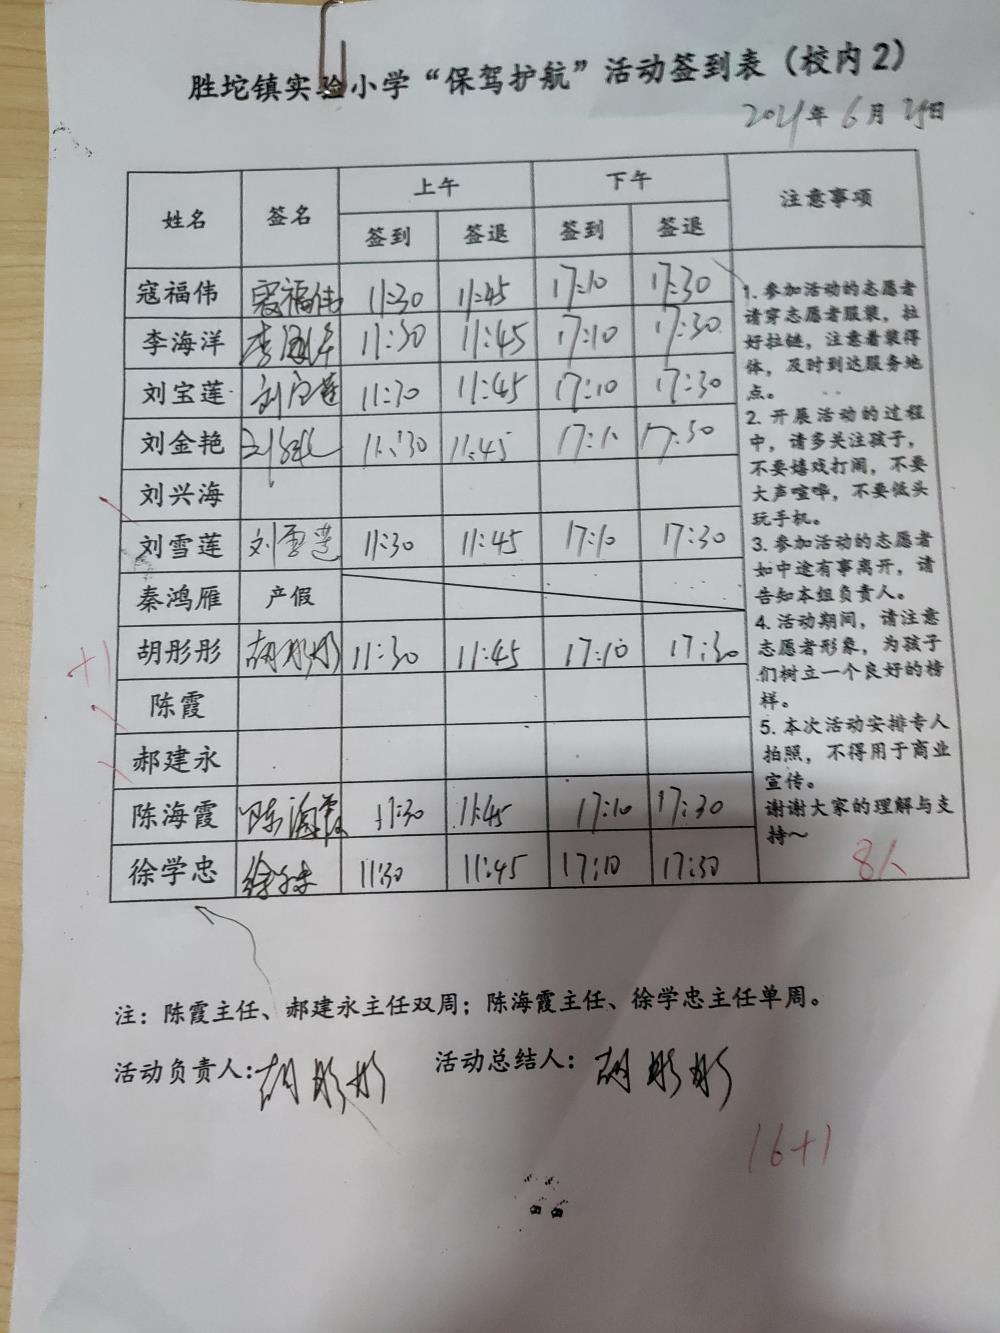 胜坨镇实验小学“保驾护航”活动签到表（校内2）
2021年6月29日
姓名 签名 上午 下午 注意事项
签到 签退 签到 签退
寇福伟 寇福伟 11:30 11:45 17:10 17:30
李海洋 李海洋 11:30 11:45 17:10 17:30
刘宝莲 刘宝莲 11:30 11:45 17:10 17:30
刘金艳 刘金艳 11:30 11:45 17:10 17:30
刘兴海
刘雪莲 刘雪莲 11:30 11:45 17:10 17:30
秦鸿雁 产假
+1 胡彤彤 胡彤彤 11:30 11:45 17:10 17:30
陈霞
郝建永
陈海霞 陈海霞 11:30 11:45 17:10 17:30
徐学忠 徐学忠 11:30 11:45 17:10 17:30
1. 参加活动的志愿者
请穿志愿者服装，拉
好拉链，注意着装得
体，及时到达服务地
点。
2. 开展活动的过程
中，请多关注孩子，
不要嬉戏打闹，不要
大声喧哗，不要低头
玩手机。
3. 参加活动的志愿者
如中途有事离开，请
告知本组负责人。
4. 活动期间，请注意
志愿者形象，为孩子
们树立一个良好的榜
样。
5. 本次活动安排专人
拍照，不得用于商业
宣传。
谢谢大家的理解与支
持～
8人
注：陈霞主任、郝建永主任双周；陈海霞主任、徐学忠主任单周。
活动负责人：胡彤彤 活动总结人：胡彤彤
16+1